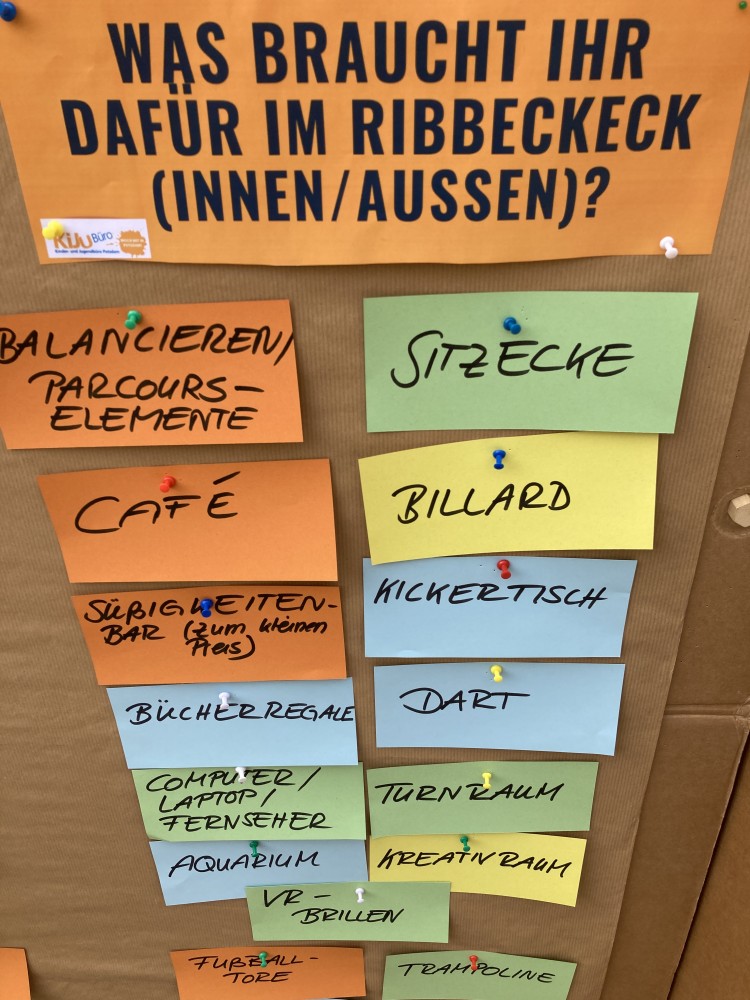 WAS BRAUCHT IHR
DAFÜR IM RIBBECKECK
(INNEN/AUSSEN)?
KiJu Büro
Kinder- und Jugendbüro Potsdam
BALANCIEREN/
PARCOURS-
ELEMENTE
SITZECKE
CAFÉ
BILLARD
SÜßIGKEITEN-
BAR (zum kleinen
Preis)
KICKERTISCH
BÜCHERREGALE
DART
COMPUTER/
LAPTOP/
FERNSEHER
TURNRAUM
AQUARIUM
KREATIVRAUM
VR-
BRILLEN
FUßBALL-
TORE
TRAMPOLINE